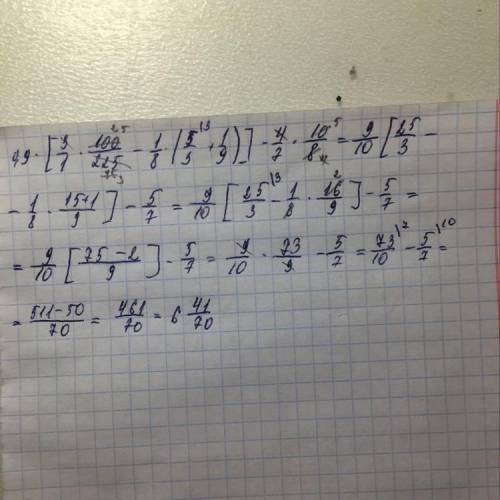 0,9 · [3/1 · 100/225 − 1/8 (5/3 + 1/9)] − 4/7 · 10/8 = 9/10 [25/3 −
− 1/8 · 15+1/9] − 5/7 = 9/10 [25/3 − 1/8 · 16/9] − 5/7 =
= 9/10 [75−2/9] − 5/7 = 9/10 · 73/9 − 5/7 = 73/10 − 5/7 =
= 511−50/70 = 461/70 = 6 41/70